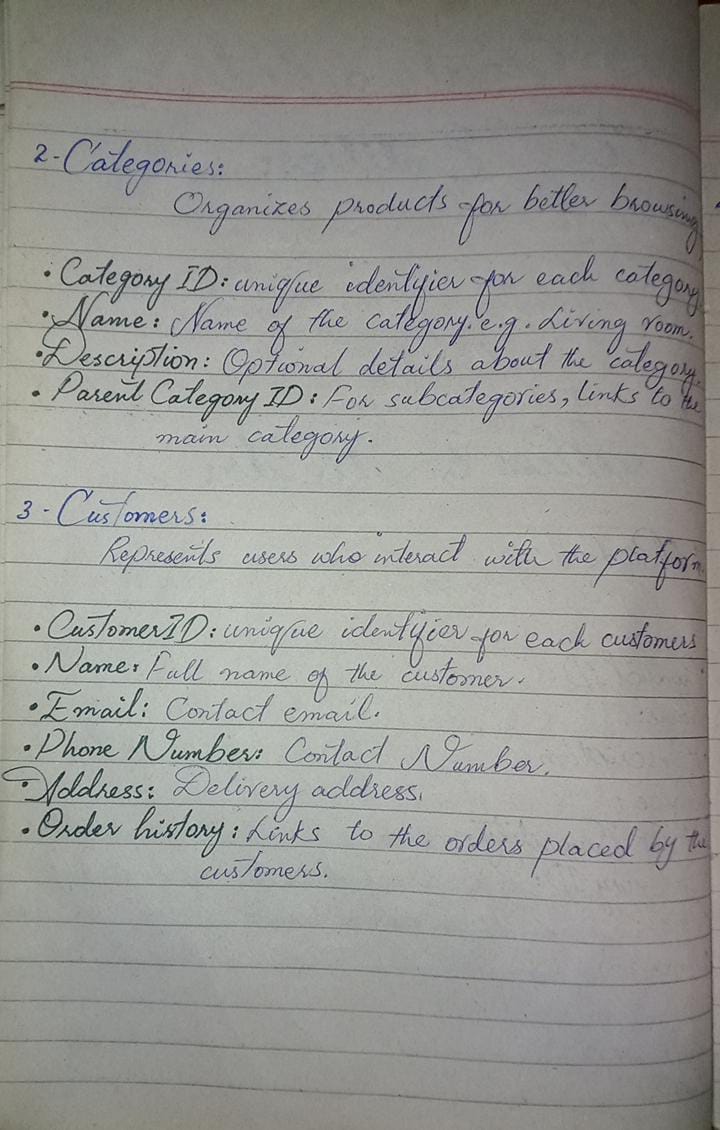 2-Categories:
Organizes products for better browsing
• Category ID: unique identifier for each category.
• Name: Name of the category. e.g. Living room.
• Description: Optional details about the category.
• Parent Category ID: For subcategories, links to the
main category.
3- Customers:
Represents users who interact with the platform.
• CustomerID: unique identifier for each customers
• Name: Full name of the customer.
• Email: Contact email.
• Phone Number: Contact Number.
• Address: Delivery address.
• Order history: Links to the orders placed by the
customers.